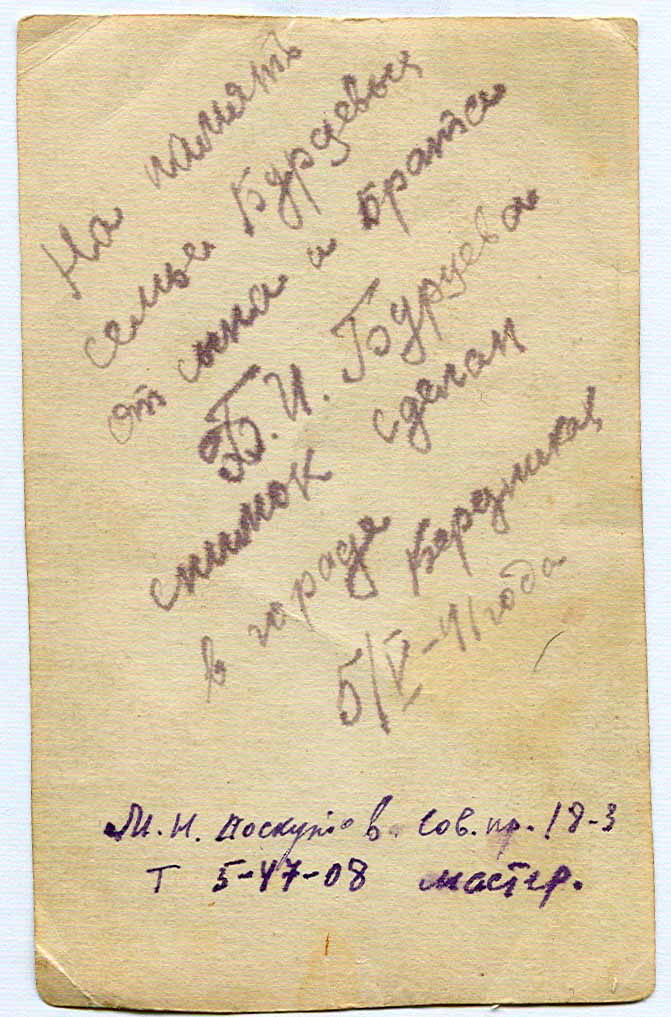 На память
семье Бурцевых
от сына и брата
Б. И. Бурцева
снимок сделан
в городе Березниках
5/V-41 года
М. Н. Лоскутов Сов. пр. 18-3
Т 5-47-08 мастер.